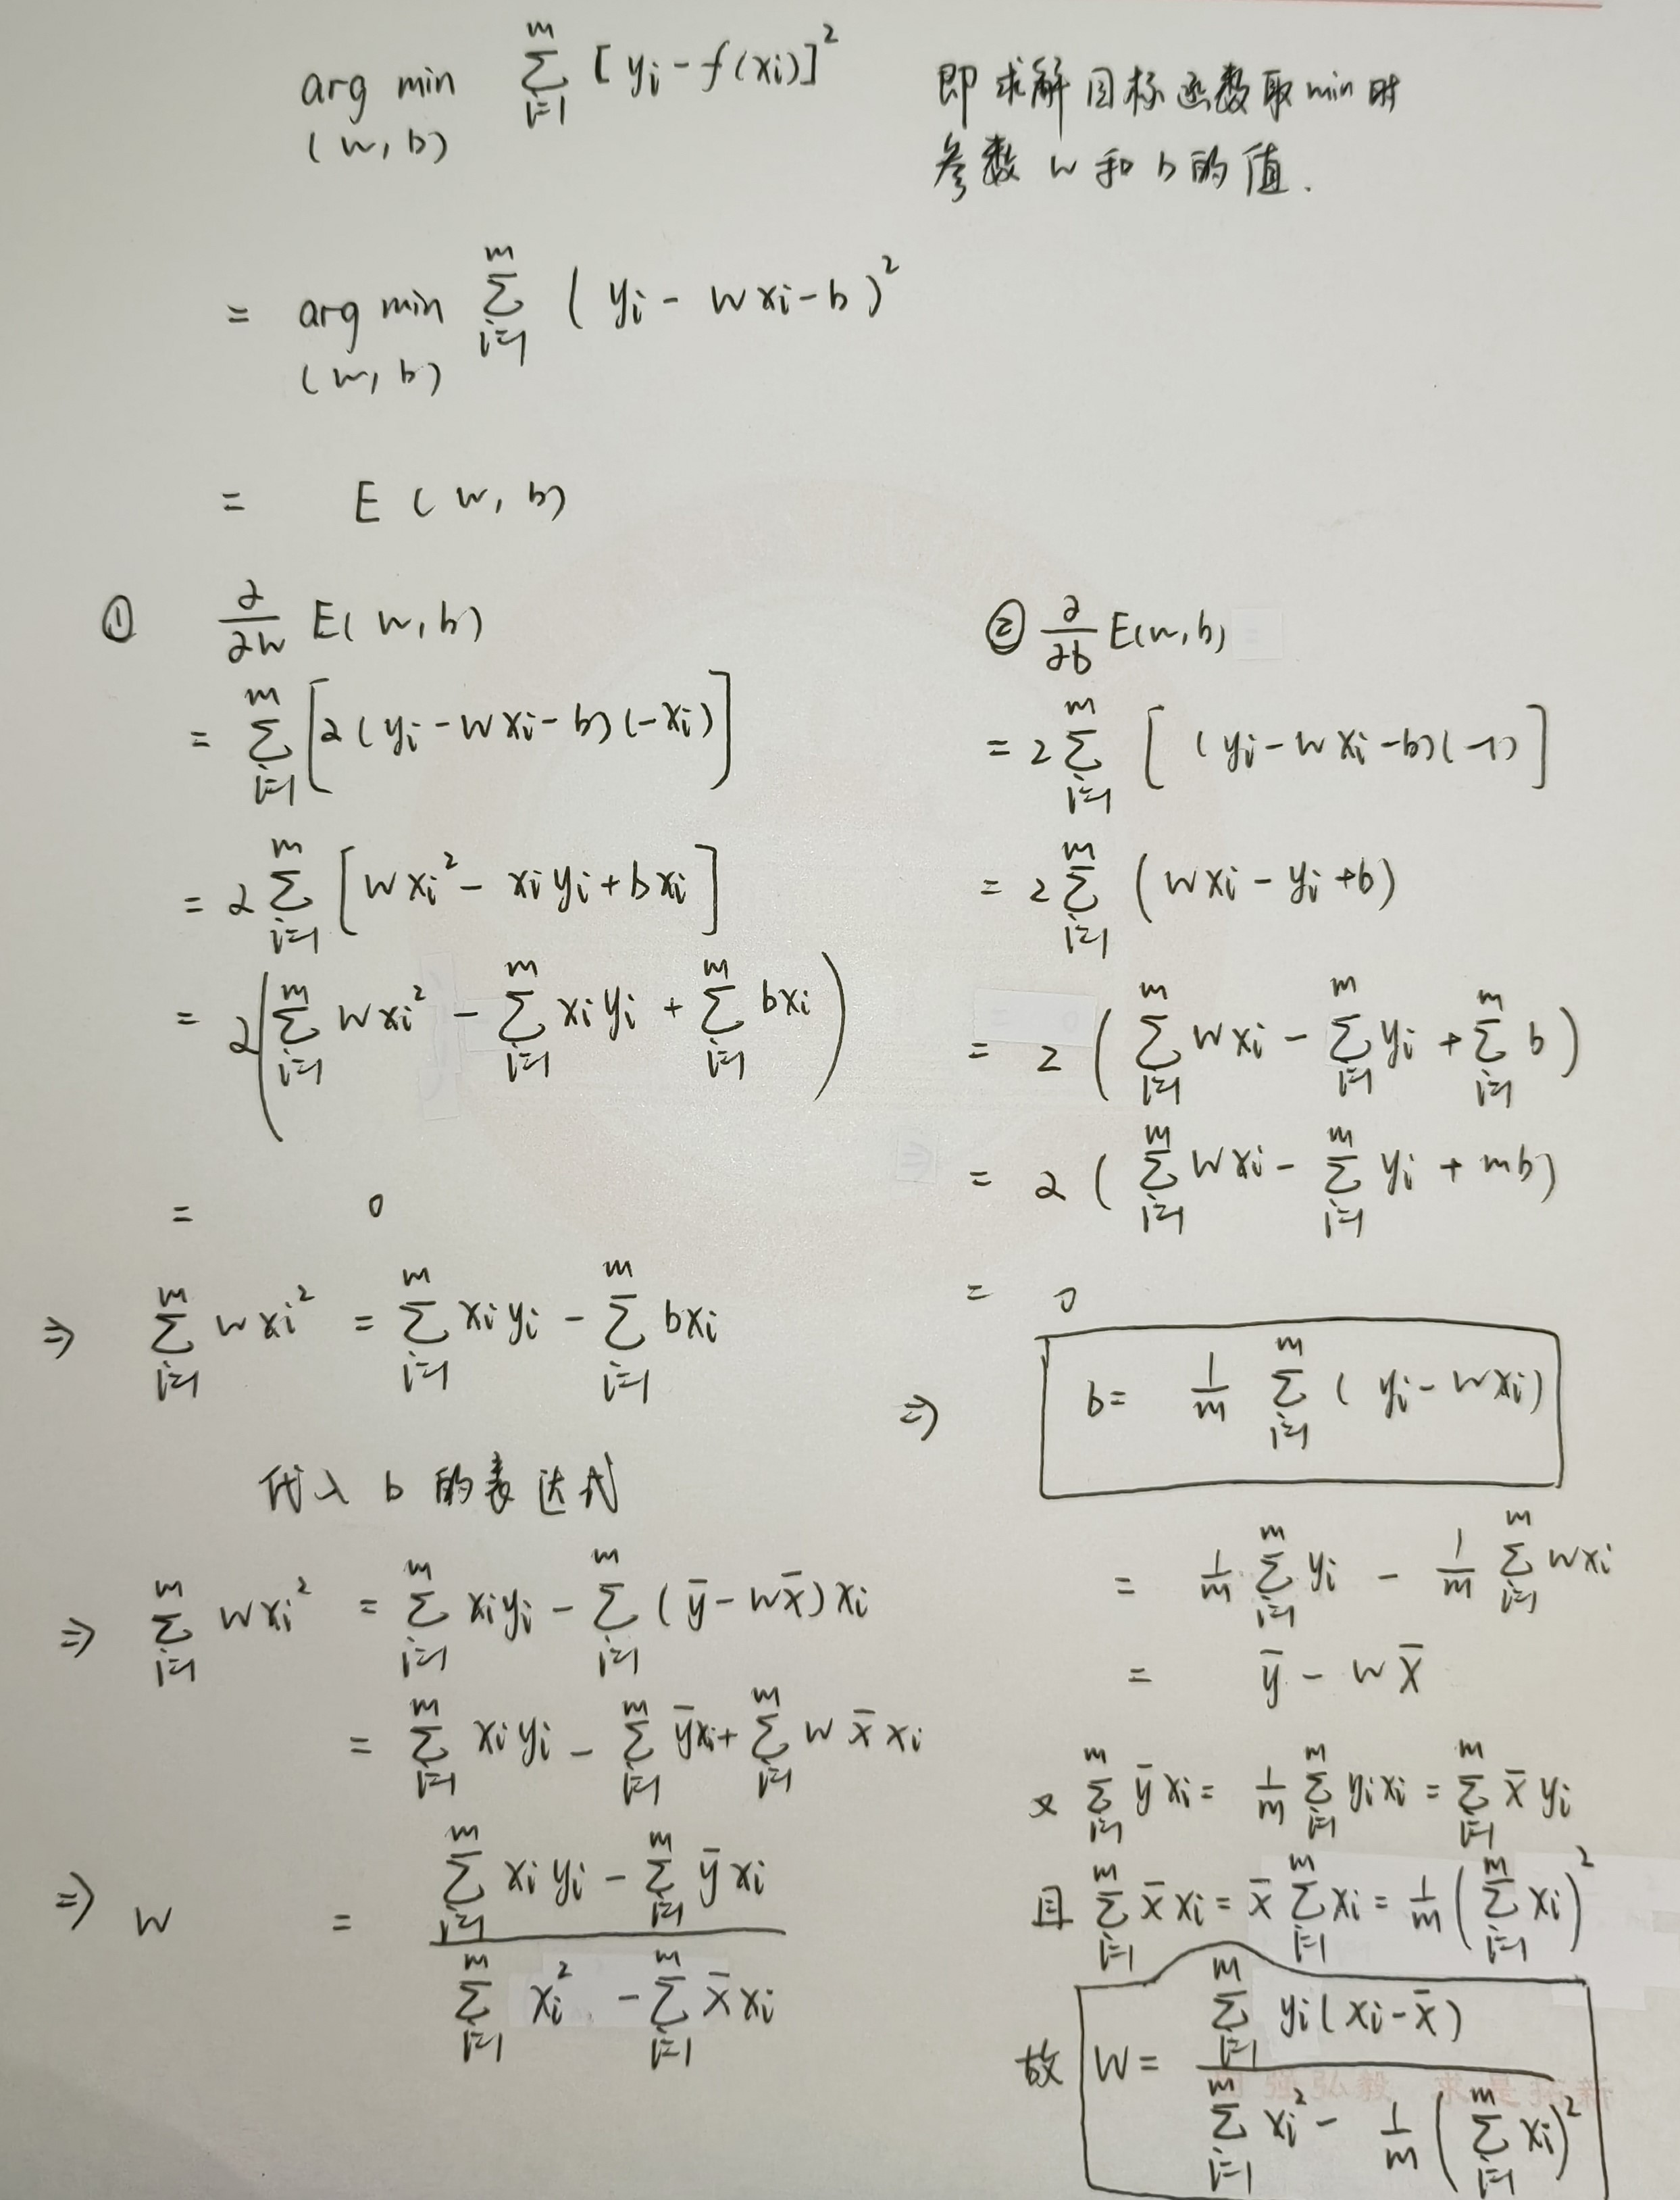 arg min Σ_{i=1}^{m} [y_i - f(x_i)]² 即求解目标函数取min时
(w, b) 参数 w 和 b 的值.
= arg min Σ_{i=1}^{m} (y_i - wx_i - b)²
(w, b)
= E(w, b)
① ∂/∂w E(w, b)
= Σ_{i=1}^{m} [2(y_i - wx_i - b)(-x_i)]
= 2 Σ_{i=1}^{m} [wx_i² - x_i y_i + bx_i]
= 2(Σ_{i=1}^{m} wx_i² - Σ_{i=1}^{m} x_i y_i + Σ_{i=1}^{m} bx_i)
= 0
⇒ Σ_{i=1}^{m} wx_i² = Σ_{i=1}^{m} x_i y_i - Σ_{i=1}^{m} bx_i
代入 b 的表达式
⇒ Σ_{i=1}^{m} wx_i² = Σ_{i=1}^{m} x_i y_i - Σ_{i=1}^{m} (ȳ - wx̄)x_i
= Σ_{i=1}^{m} x_i y_i - Σ_{i=1}^{m} ȳx_i + Σ_{i=1}^{m} w x̄ x_i
⇒ w = (Σ_{i=1}^{m} x_i y_i - Σ_{i=1}^{m} ȳ x_i) / (Σ_{i=1}^{m} x_i² - Σ_{i=1}^{m} x̄ x_i)
② ∂/∂b E(w, b)
= 2 Σ_{i=1}^{m} [(y_i - wx_i - b)(-1)]
= 2 Σ_{i=1}^{m} (wx_i - y_i + b)
= 2 (Σ_{i=1}^{m} wx_i - Σ_{i=1}^{m} y_i + Σ_{i=1}^{m} b)
= 2 (Σ_{i=1}^{m} wx_i - Σ_{i=1}^{m} y_i + mb)
= 0
⇒ b = 1/m Σ_{i=1}^{m} (y_i - wx_i)
= 1/m Σ_{i=1}^{m} y_i - 1/m Σ_{i=1}^{m} wx_i
= ȳ - w x̄
又 Σ_{i=1}^{m} ȳ x_i = 1/m Σ_{i=1}^{m} y_i x_i = Σ_{i=1}^{m} x̄ y_i
且 Σ_{i=1}^{m} x̄ x_i = x̄ Σ_{i=1}^{m} x_i = 1/m (Σ_{i=1}^{m} x_i)²
故 w = Σ_{i=1}^{m} y_i(x_i - x̄) / (Σ_{i=1}^{m} x_i² - 1/m (Σ_{i=1}^{m} x_i)²)
强弘毅 求是拓新